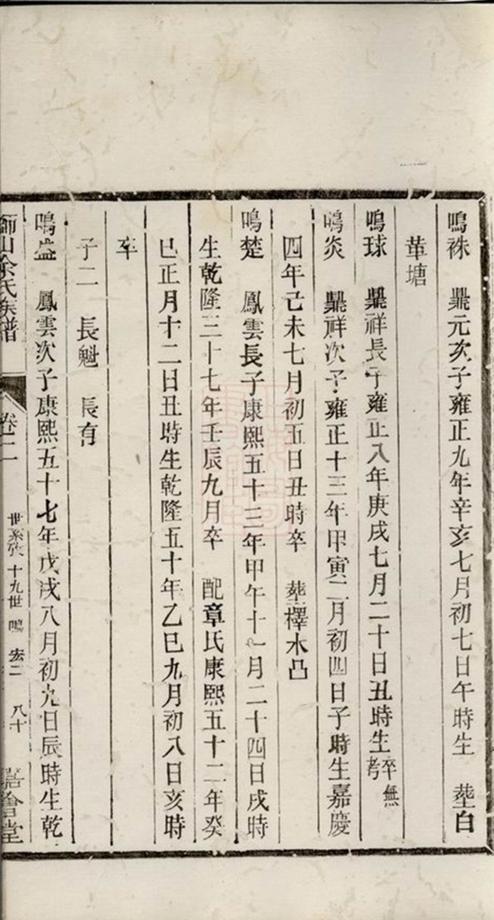 鳴袾　鼎元次子雍正九年辛亥七月初七日午時生　塟白
茅塘
鳴球　鼎祥長子雍正八年庚戌七月二十日丑時生卒無考
鳴炎　鼎祥次子雍正十三年甲寅二月初四日子時生嘉慶
四年己未七月初五日丑時卒　塟檡木凸
鳴楚　鳳雲長子康熙五十三年甲午十一月二十四日戌時
生乾隆三十七年壬辰九月卒　配章氏康熙五十二年癸
巳正月十二日丑時生乾隆五十年乙巳九月初八日亥時
卒
子二　長魁　長有
鳴盛　鳳雲次子康熙五十七年戊戌八月初九日辰時生乾
山余氏族譜　卷二　世系 十九世　鳴　八十　會堂